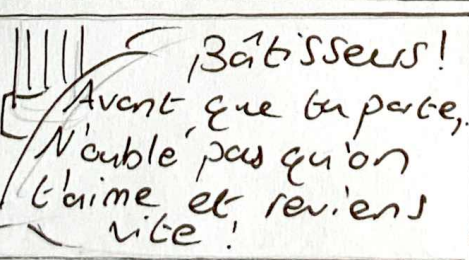 ¡Bâtisseurs!
Avant que tu parte,
N'oublé pas qu'on
t'aime et reviens
vite !